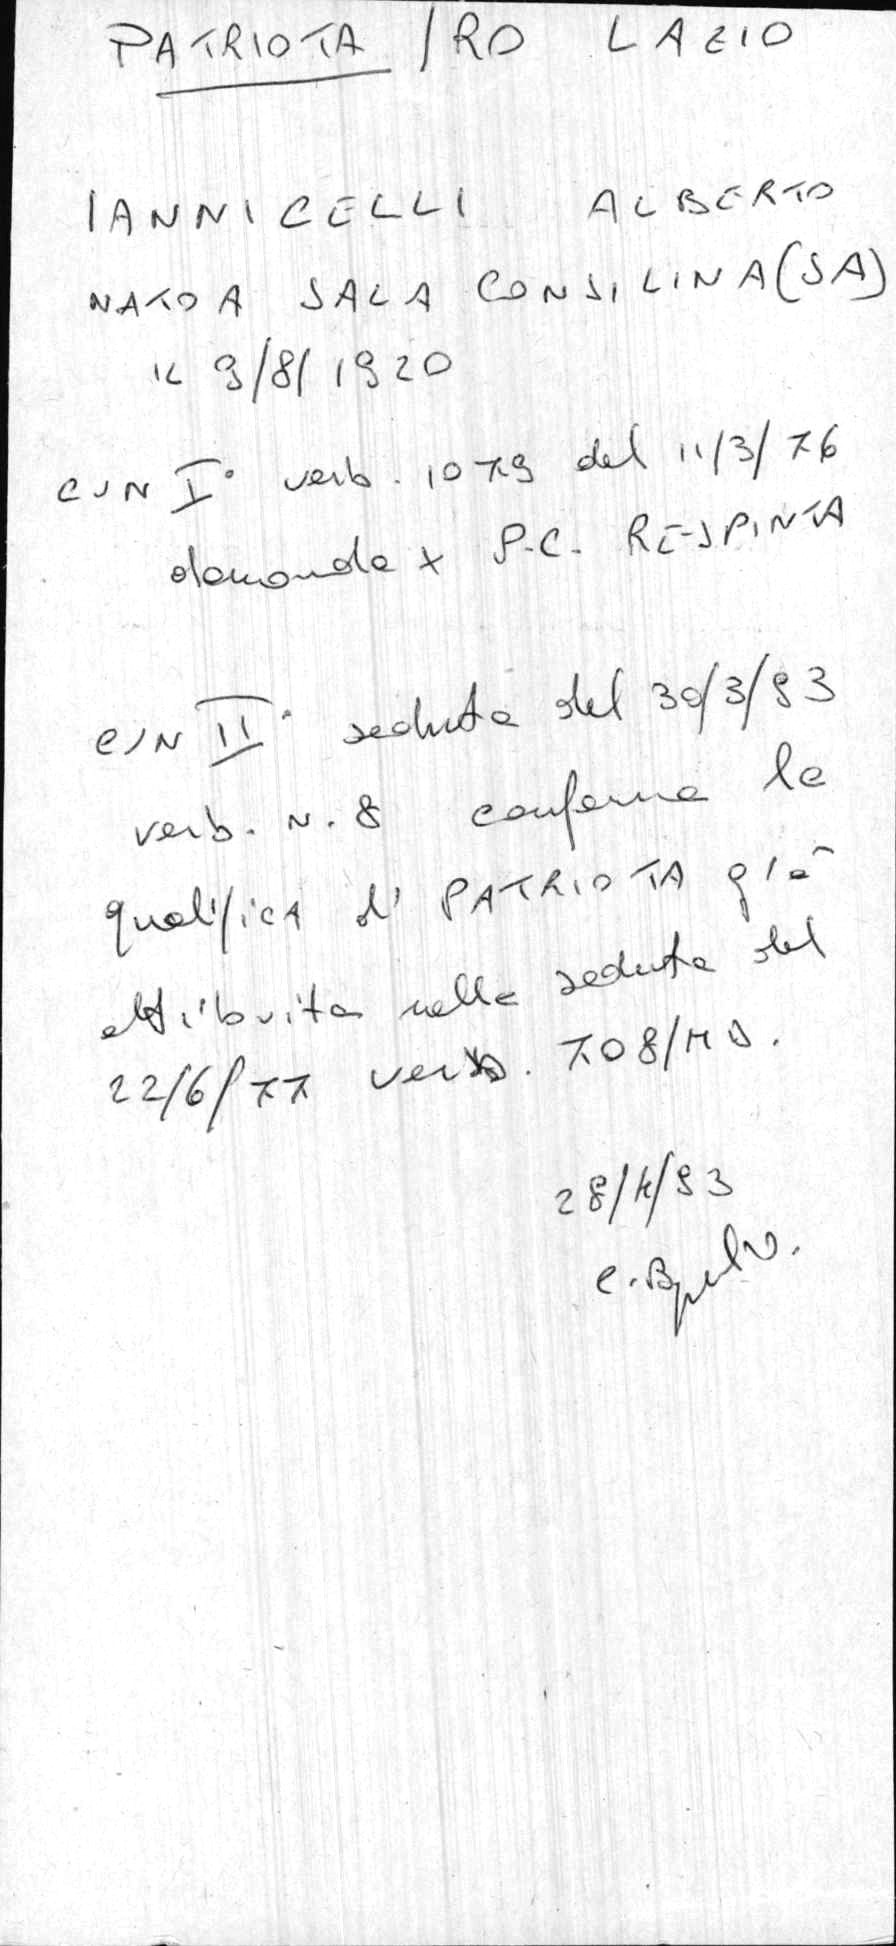 PATRIOTA / RD LAZIO
IANNICELLI ALBERTO
NATO A SALA CONSILINA (SA)
IL 9/8/1920
CUN I° verb. 1079 del 11/3/76
domanda x P.C. RESPINTA
CUN II° seduta del 30/3/93
verb. N. 8 conferma la
qualifica di PATRIOTA già
attribuita nella seduta del
22/6/77 verb. 708/MD.
28/4/93